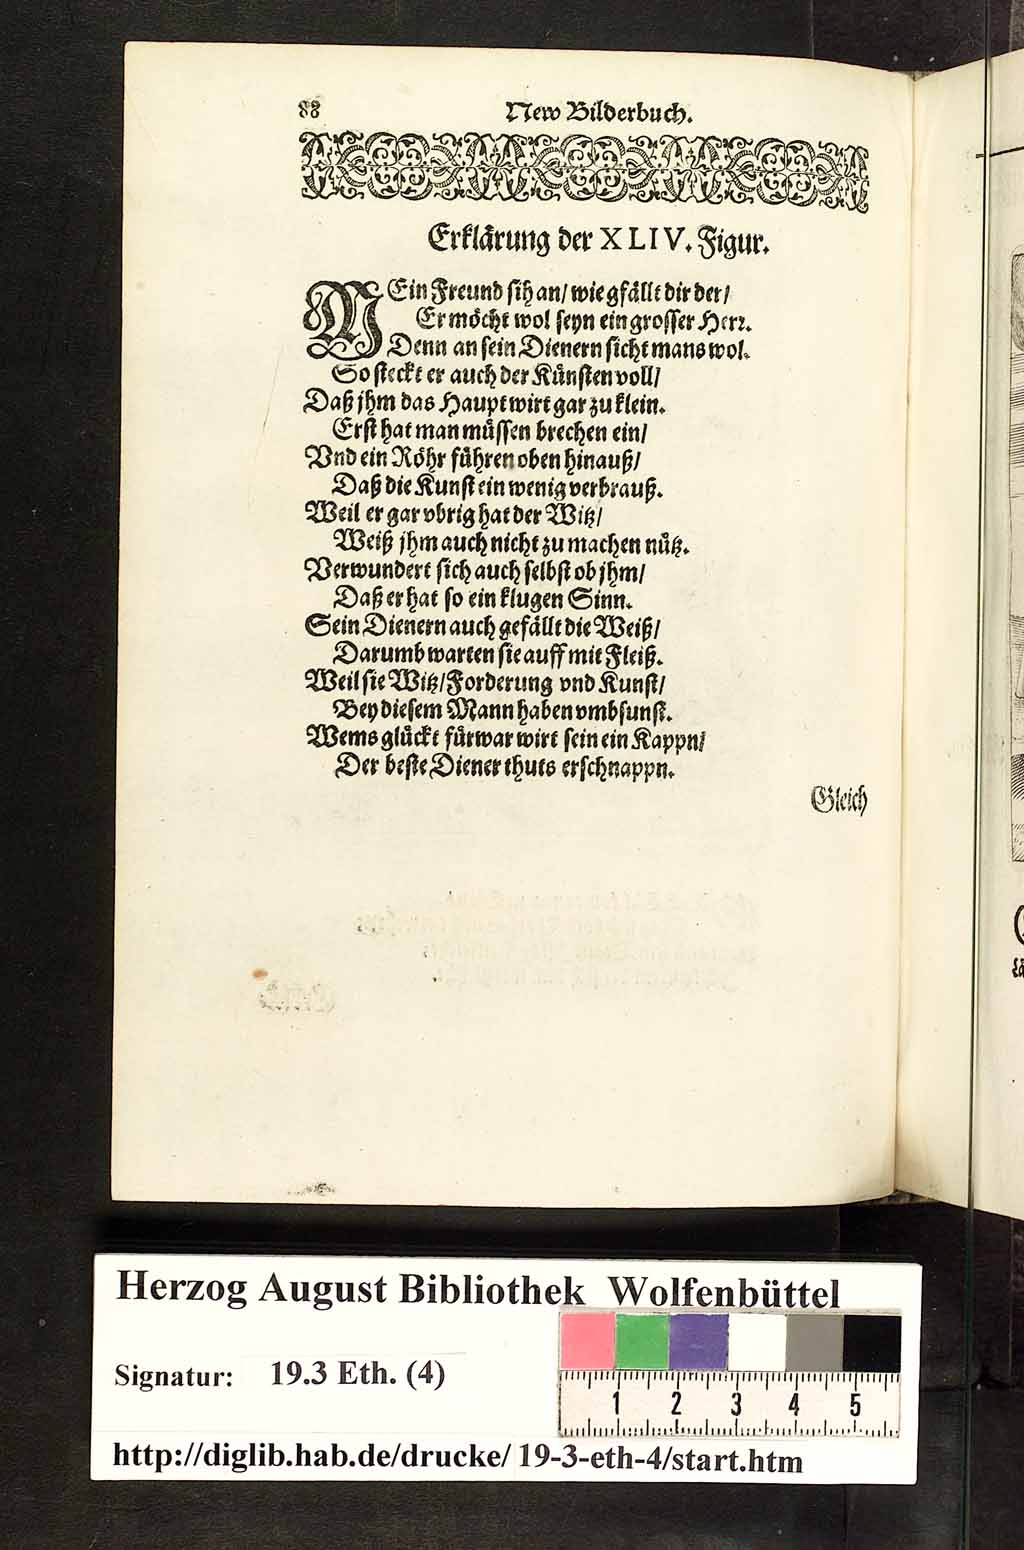 88 New Bilderbuch.
Erklärung der XLIV. Figur.
MEin Freund sih an/ wie gfällt dir der/
Er möcht wol seyn ein grosser Herr.
Denn an sein Dienern sicht mans wol.
So steckt er auch der Künsten voll/
Daß jhm das Haupt wirt gar zu klein.
Erst hat man müssen brechen ein/
Vnd ein Röhr führen oben hinauß/
Daß die Kunst ein wenig verbrauß.
Weil er gar vbrig hat der Witz/
Weiß jhm auch nicht zu machen nütz.
Verwundert sich auch selbst ob jhm/
Daß er hat so ein klugen Sinn.
Sein Dienern auch gefällt die Weiß/
Darumb warten sie auff mit Fleiß.
Weil sie Witz/ Forderung vnd Kunst/
Bey diesem Mann haben vmbsunst.
Wems glückt fürwar wirt sein ein Kappn/
Der beste Diener thuts erschnappn.
Gleich
Herzog August Bibliothek Wolfenbüttel
Signatur: 19.3 Eth. (4)
1 2 3 4 5
http://diglib.hab.de/drucke/ 19-3-eth-4/start.htm